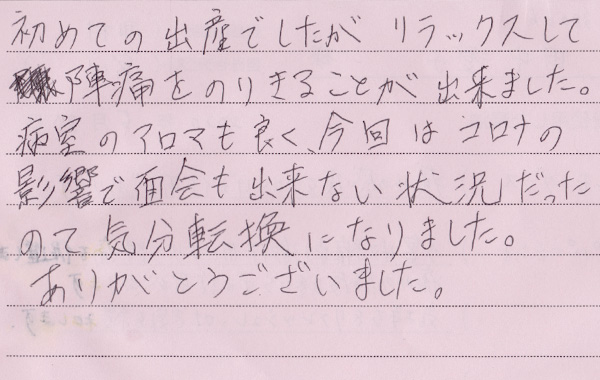 初めての出産でしたが リラックスして
陣痛をのりきることが出来ました。
病室のアロマも良く、今回はコロナの
影響で面会も出来ない状況だった
ので気分転換になりました。
ありがとうございました。